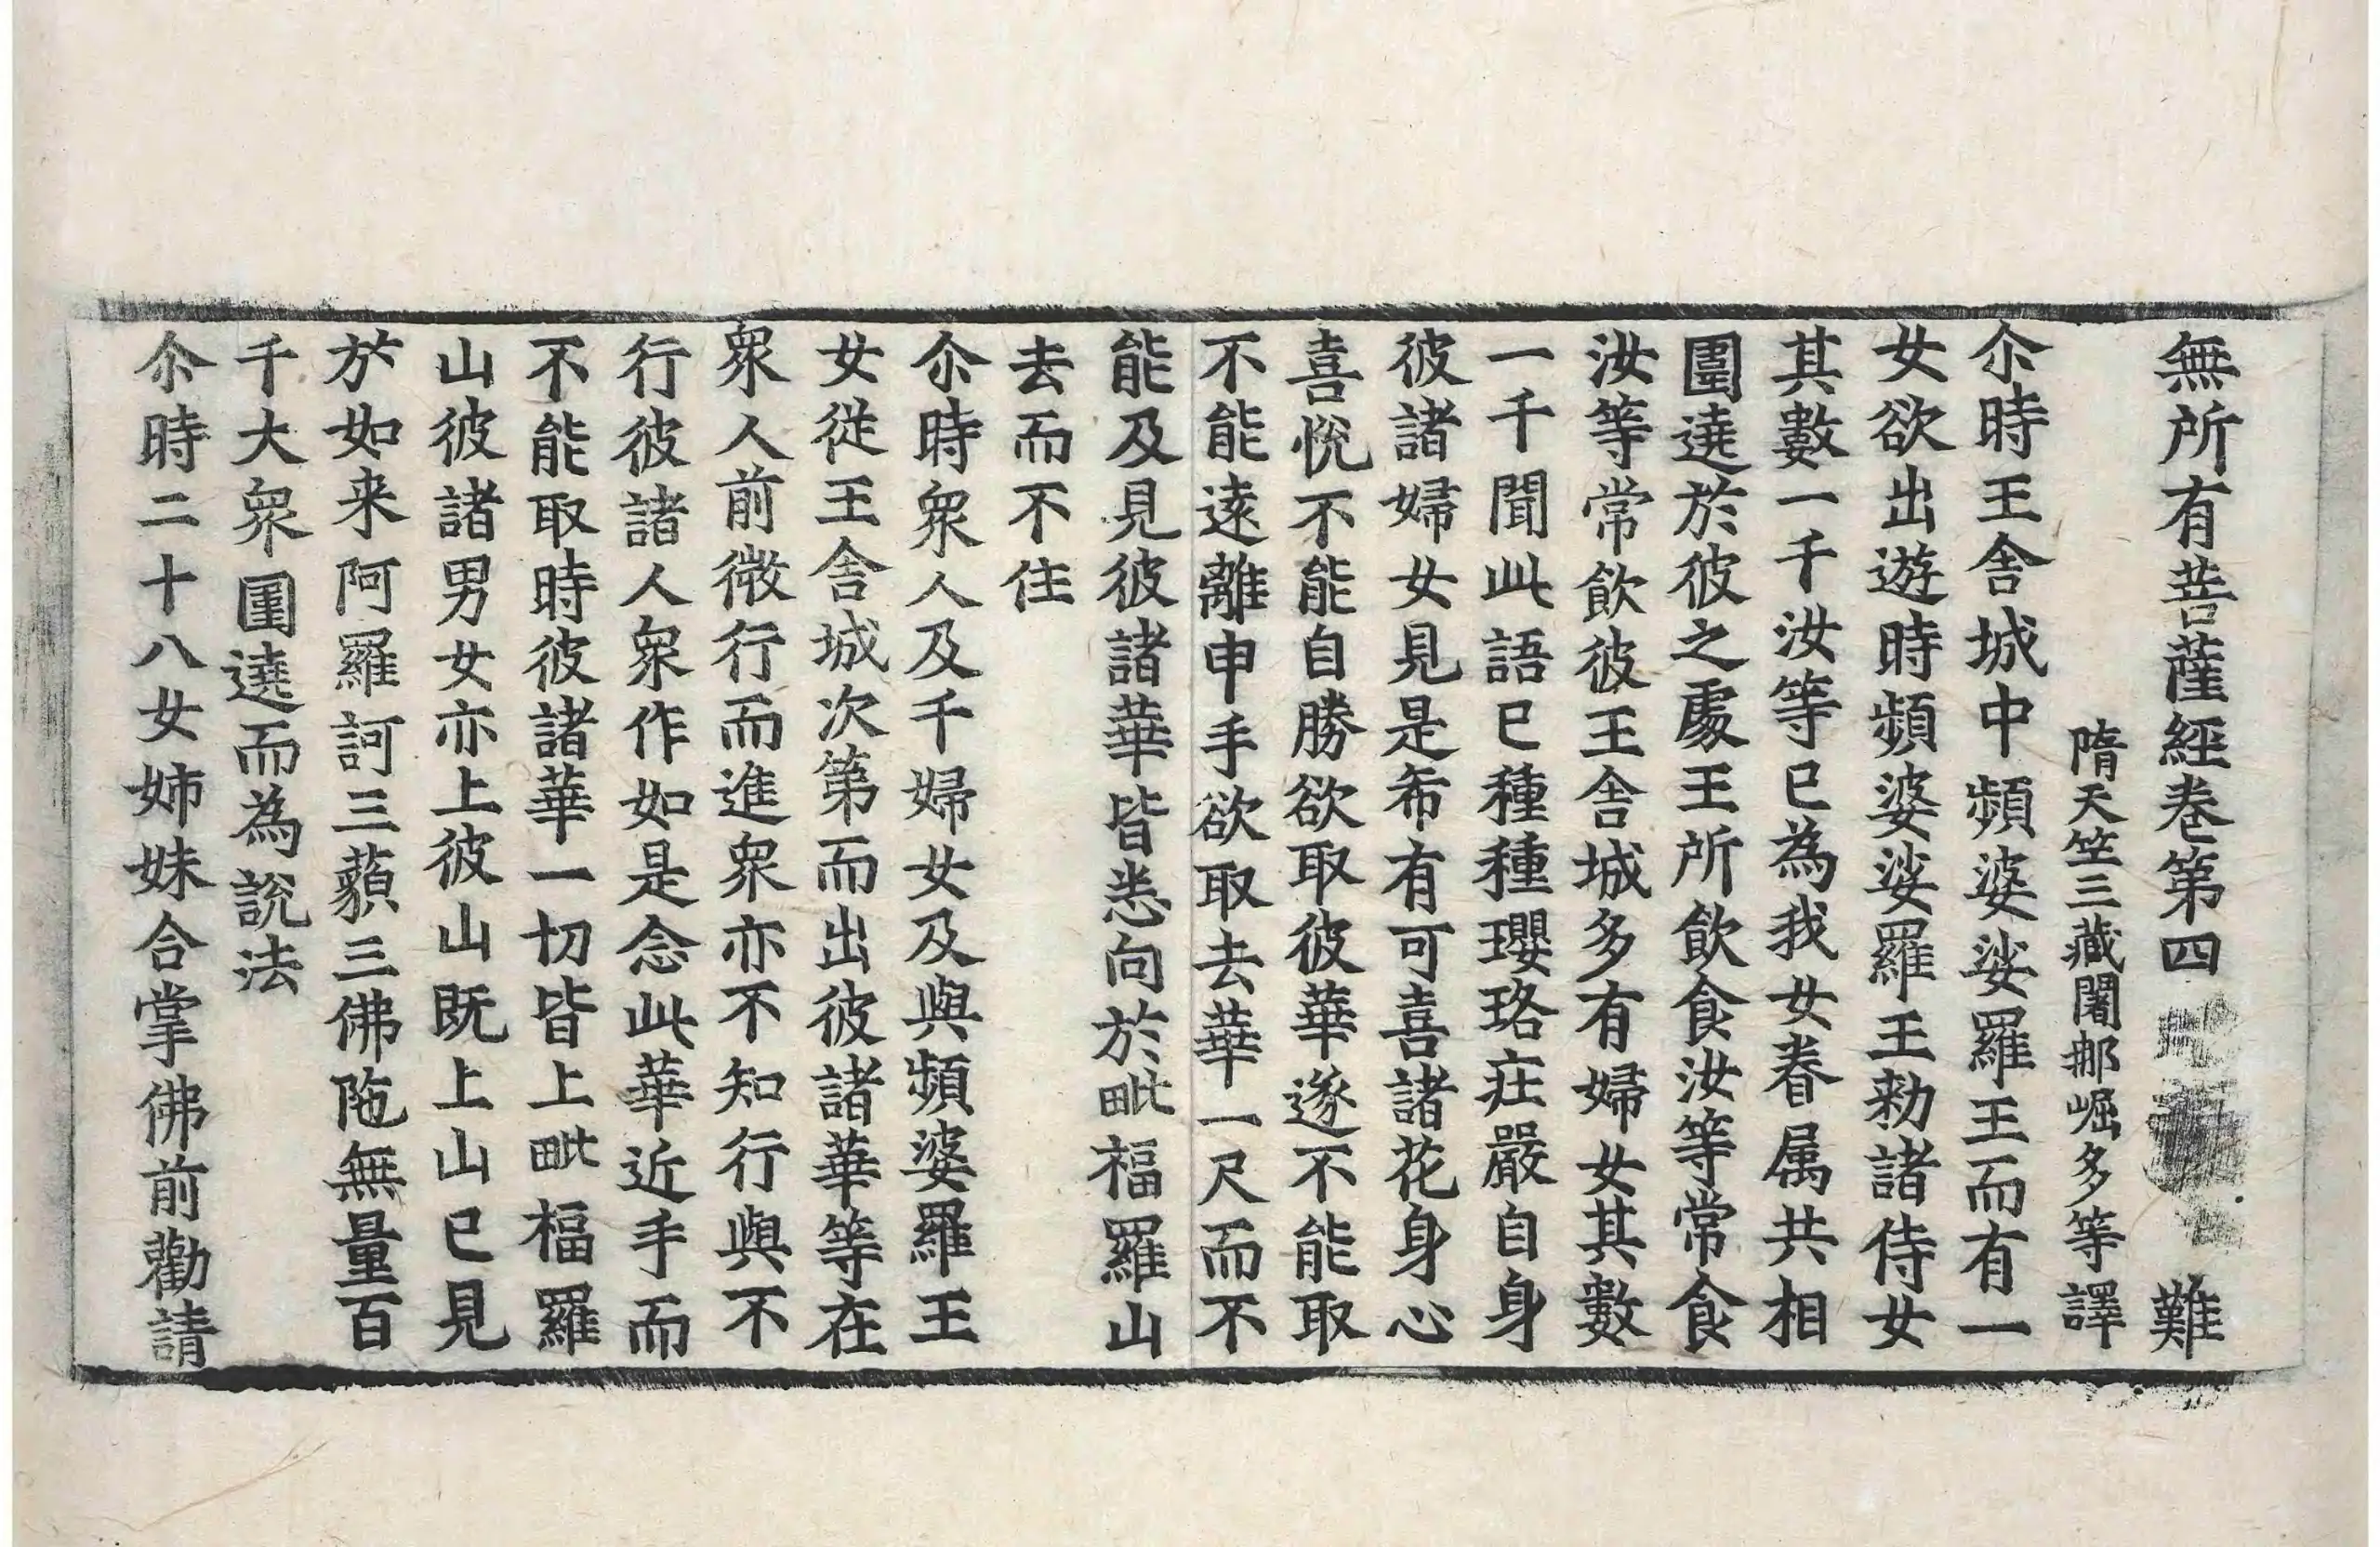 無所有菩薩經卷第四 難
隋天竺三藏闍那崛多等譯
尒時王舍城中頻婆娑羅王而有一
女欲出遊時頻婆娑羅王勑諸侍女
其數一千汝等已為我女眷属共相
圍遶於彼之處王所飲食汝等常食
汝等常飲彼王舍城多有婦女其數
一千聞此語已種種瓔珞莊嚴自身
彼諸婦女見是希有可喜諸花身心
喜悅不能自勝欲取彼華遂不能取
不能遠離申手欲取去華一尺而不
能及見彼諸華皆悉向於毗福羅山
去而不住
尒時衆人及千婦女及與頻婆羅王
女從王舍城次第而出彼諸華等在
衆人前微行而進衆亦不知行與不
行彼諸人衆作如是念此華近手而
不能取時彼諸華一切皆上毗福羅
山彼諸男女亦上彼山既上山已見
於如来阿羅訶三藐三佛陁無量百
千大衆圍遶而為說法
尒時二十八女姊妹合掌佛前勸請